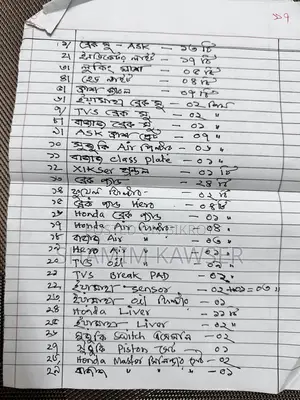 ১৯
১/ ব্রেক সু - ASK - ১৩ টি
২/ ইন্ডিকেটর লাইট - ১৭ টি
৩/ লুকিং গ্লাস - ০৪ টি
৪/ হেড লাইট - ০৪ টি
৫/ - ০৭ টি
৬/ ইয়ামাহা ব্রেক সু - ০২
৭/ TVS ব্রেক সু - ০২ "
৮/ বাজাজ ব্রেক সু - ০১ "
৯/ ASK ক্লাস প্লেট - ০৭ "
১০ সুজুকি Air ফিল্টার - ০১ "
১১ বাজাজ class plate - ০১ "
১২ XIKSer - ০১ টি
১৩ ব্রেক প্যাড - ২৪ টি
১৪ ফুয়েল ফিল্টার - ০১ টি
১৫ ব্রেক প্যাড Hero - ০৪ টি
১৬ Honda ব্রেক প্যাড - ০১ "
১৭ Honda Air ফিল্টার - ০৪ "
১৮ বাজাজ Air " - ০৩ "
১৯ Hero Air " - ০১ "
২০ TVS Oil " - ০১ "
২১ TVS Break PAD - ০২ "
২২ ইয়ামাহা sensor - ০২
২৩ ইয়ামাহা Oil ফিল্টার - ০২ "
২৪ Honda Liver - ১১ টি
২৫ ইয়ামাহা Liver - ০২ "
২৬ সুজুকি Switch - ০২
২৭ সুজুকি Piston সেট - ০১
২৮ Honda Master সিলিন্ডার - ০২
২৯ বাজাজ " " - ০১
SHAMIM KAWSER